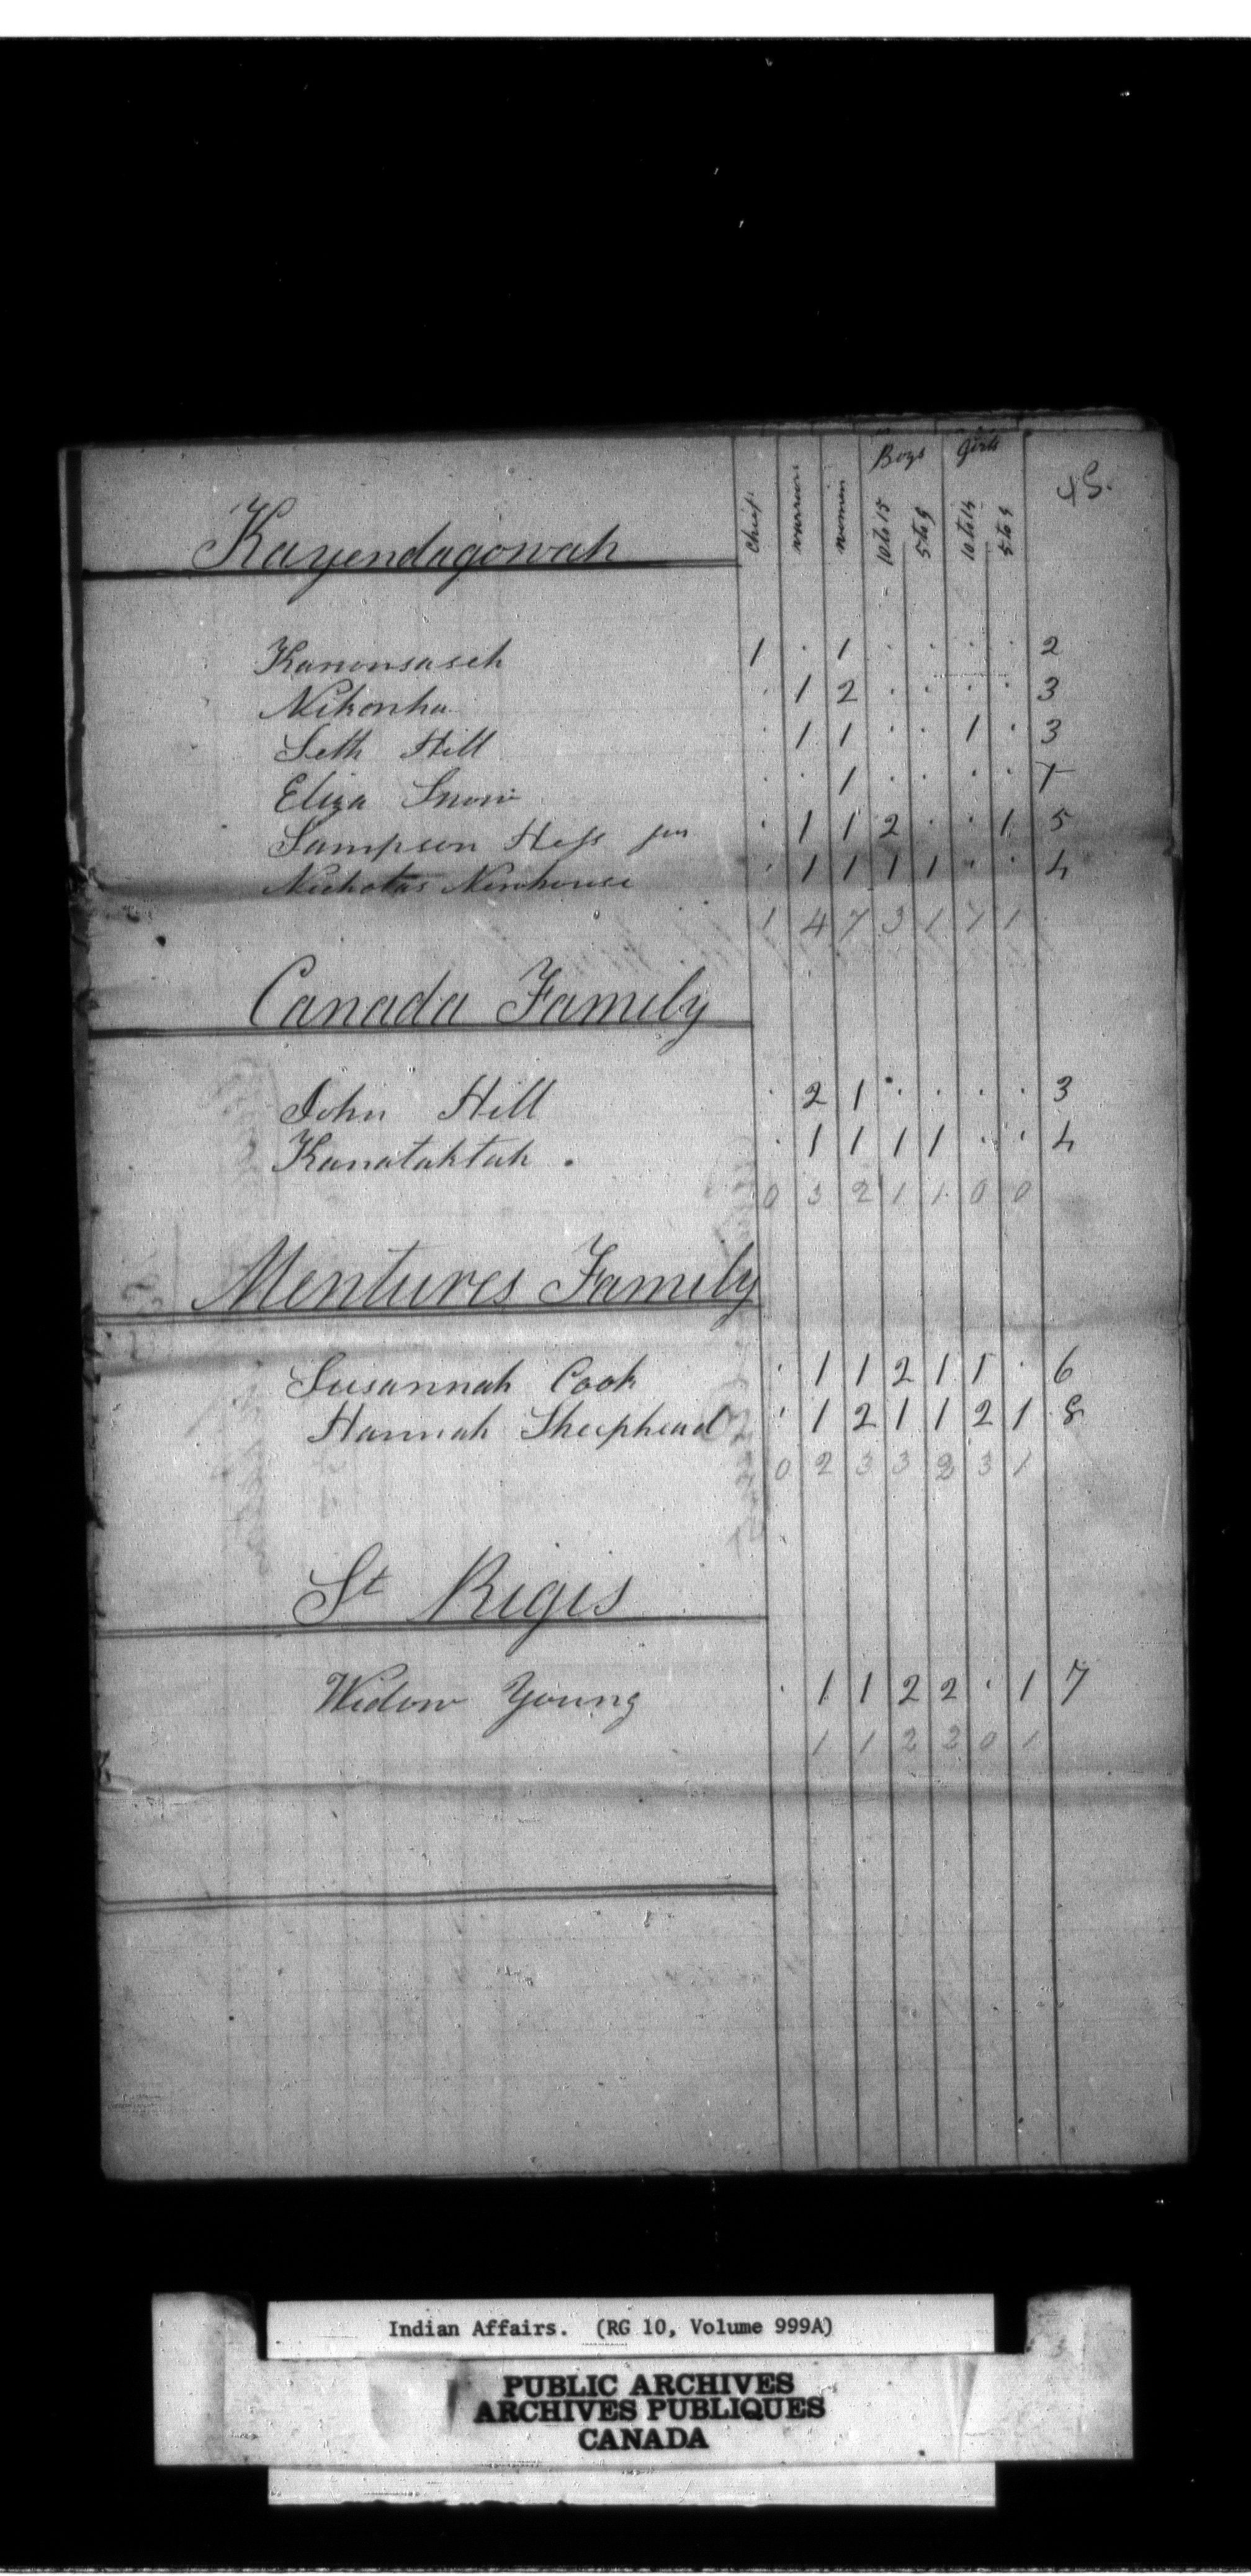 Boys Girls
Chiefs warriors women 10 to 15 5 to 9 10 to 14 5 to 9
Kayendagowah
Kanonsaseh 1 · 1 · · · · 2
Nikonha · 1 2 · · · · 3
Seth Hill · 1 1 · · 1 · 3
Eliza Snow · · 1 · · · · 1
Sampson Hess jun · 1 1 2 · · 1 5
Nicholas Newhouse · 1 1 1 1 · · 4
1 4 7 3 1 1 1
Canada Family
John Hill · 2 1 · · · · 3
Kanataktah . · 1 1 1 1 · · 4
0 3 2 1 1 0 0
Mentures Family
Susannah Cook · 1 1 2 1 1 · 6
Hannah Sheephead · 1 2 1 1 2 1 8
0 2 3 3 2 3 1
St Regis
Widow Young · 1 1 2 2 · 1 7
1 1 2 2 0 1
Indian Affairs. (RG 10, Volume 999A)
PUBLIC ARCHIVES
ARCHIVES PUBLIQUES
CANADA